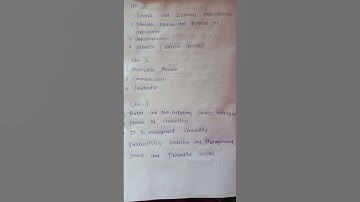 Unit - III
1 Formal and Informal organisations
2 Principles, Process and Purpose of
organisation
3 Departmentation
4 Selection (selection process)
Unit - IV
1 Motivation Theories
2 Communication
3 Leadership
Unit - V
Budget and Non-budgetary Control techniques
process of Controlling
IT in management Controlling
Productivity Problems and Management
Direct and Preventive Control